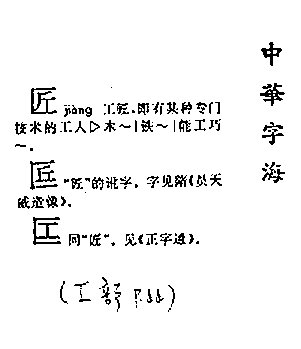 中華字海
匠 jiàng 工匠，即有某种专门
技术的工人▷木～|铁～|能工巧
～。
匠 “匠”的讹字，字见隋《员天
威造像》。
同“匠”，见《正字通》。
(工部 P.44)